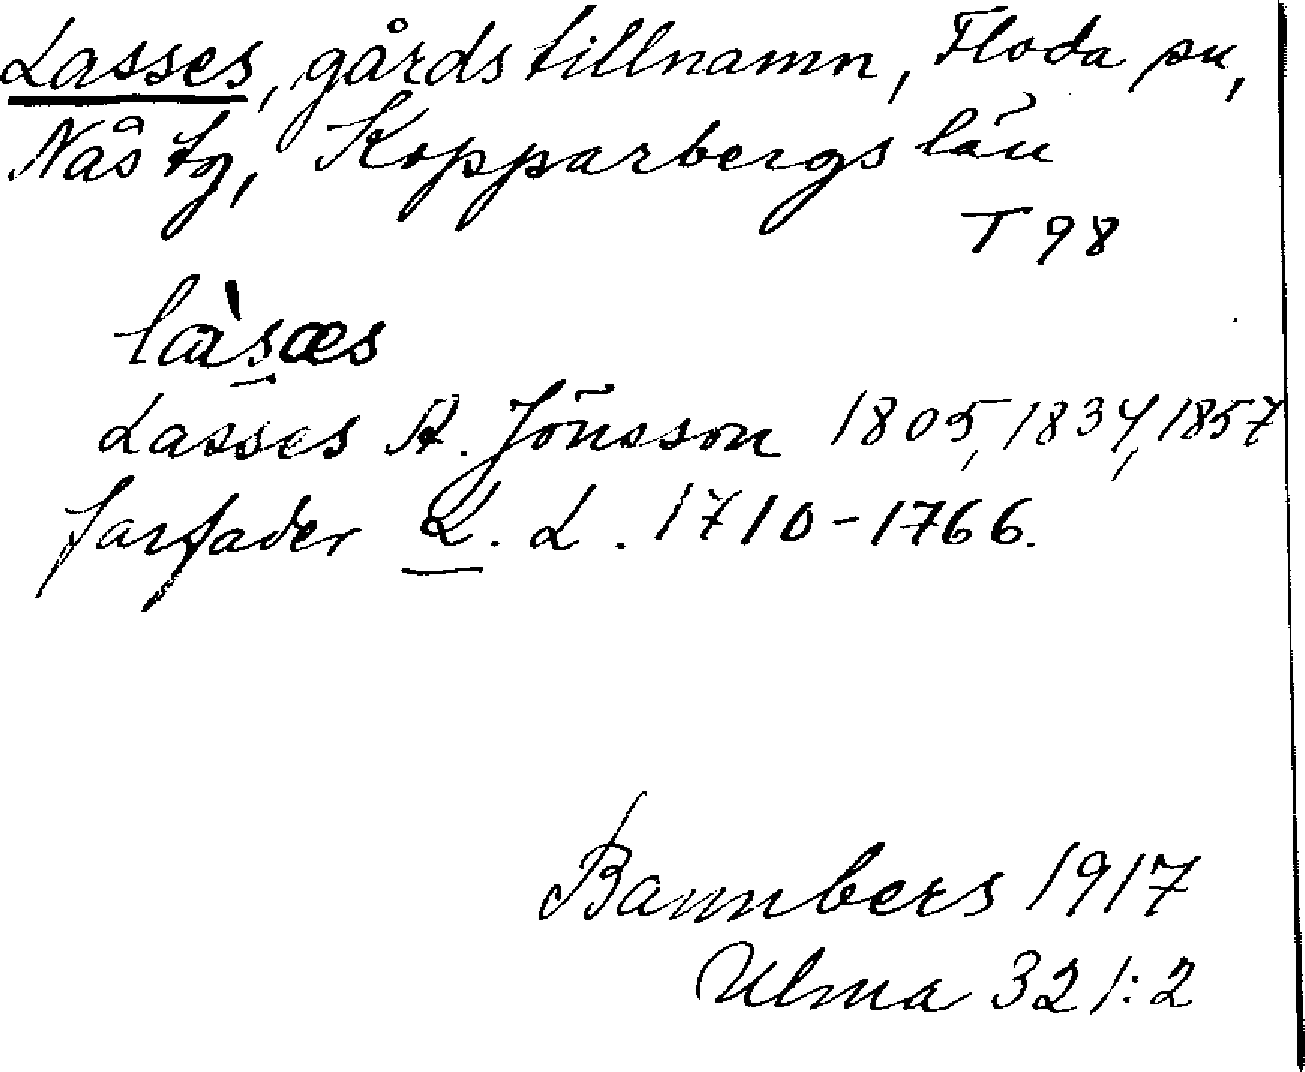 Lasses, gårdstillnamn, Floda sn,
Nås tg, Kopparbergs län
T 98
là̱sæs
Lasses A. Jönsson 1805, 1834, 1857
farfader L. L. 1710-1766.
Bannbers 1917
Ulma 321:2